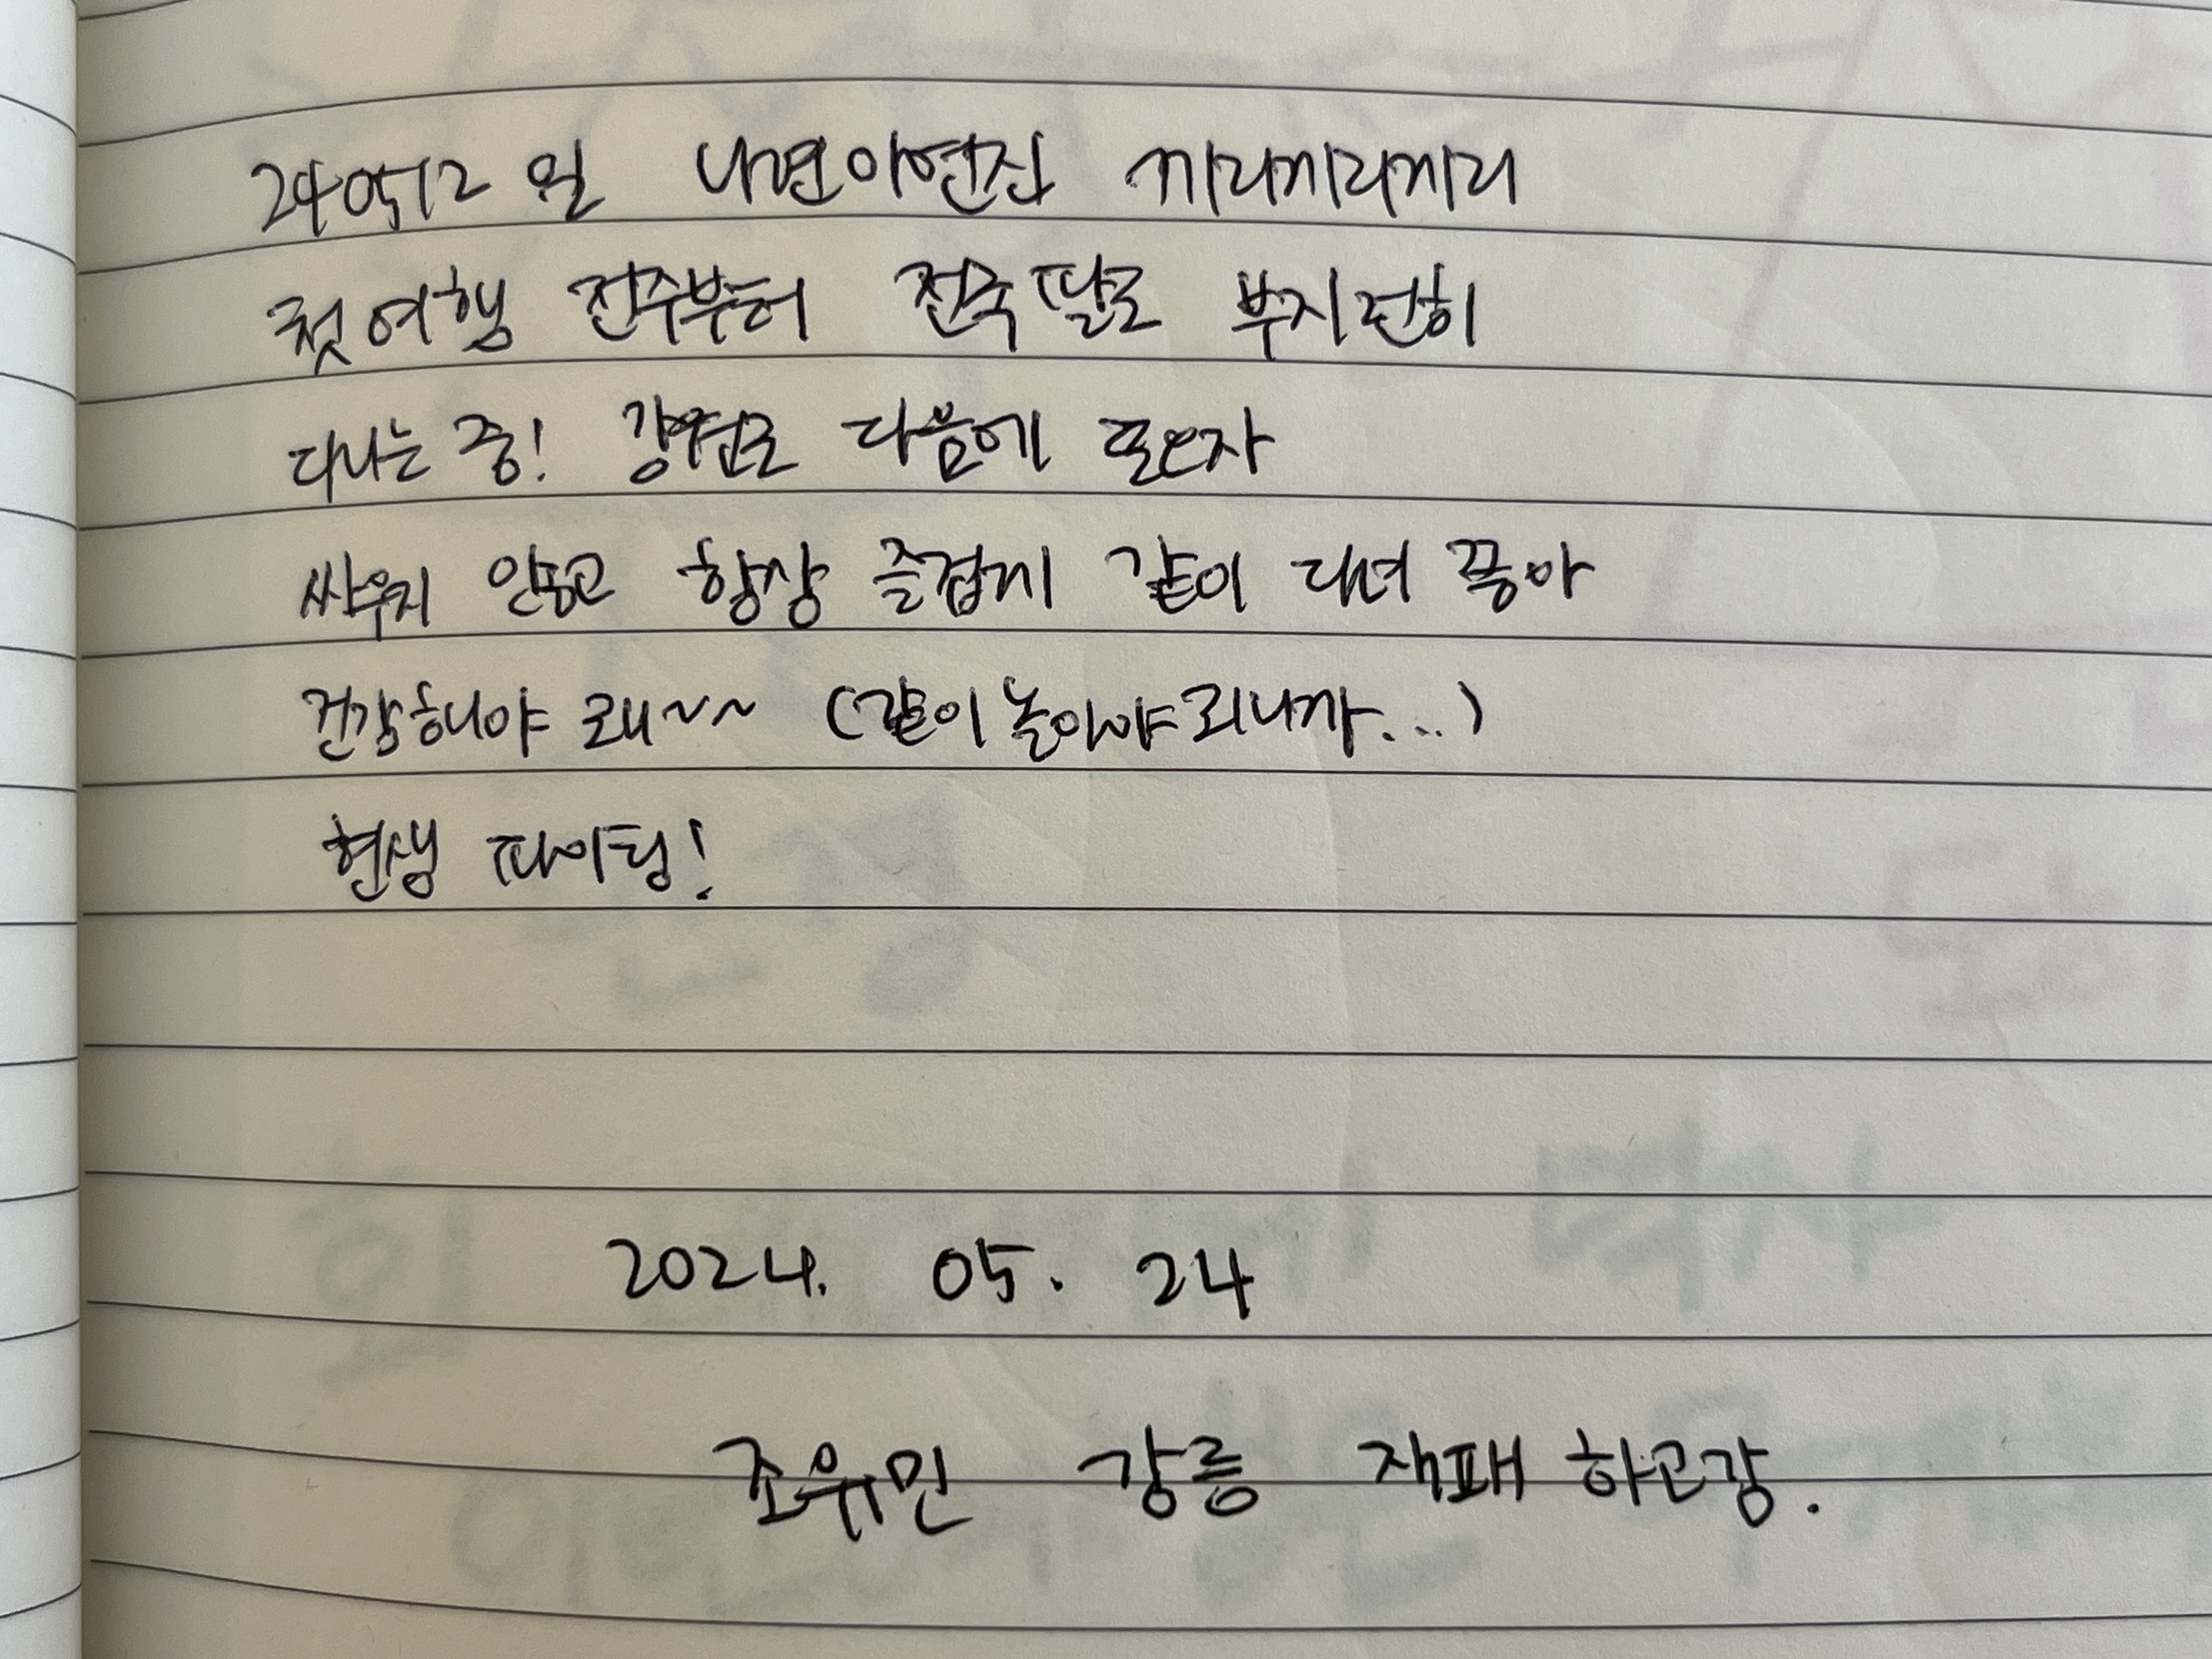 240512 일 나현이현진 끼리끼리끼리
첫여행 전주부터 전국팔도 부지런히
다니는 중! 강원도 다음에 또오자
싸우지 않고 항상 즐겁게 같이 다녀 좋아
건강해야 돼~~ (같이놀아야되니까...)
현생 파이팅!
2024. 05. 24
조유민 강릉 재패 하고감.